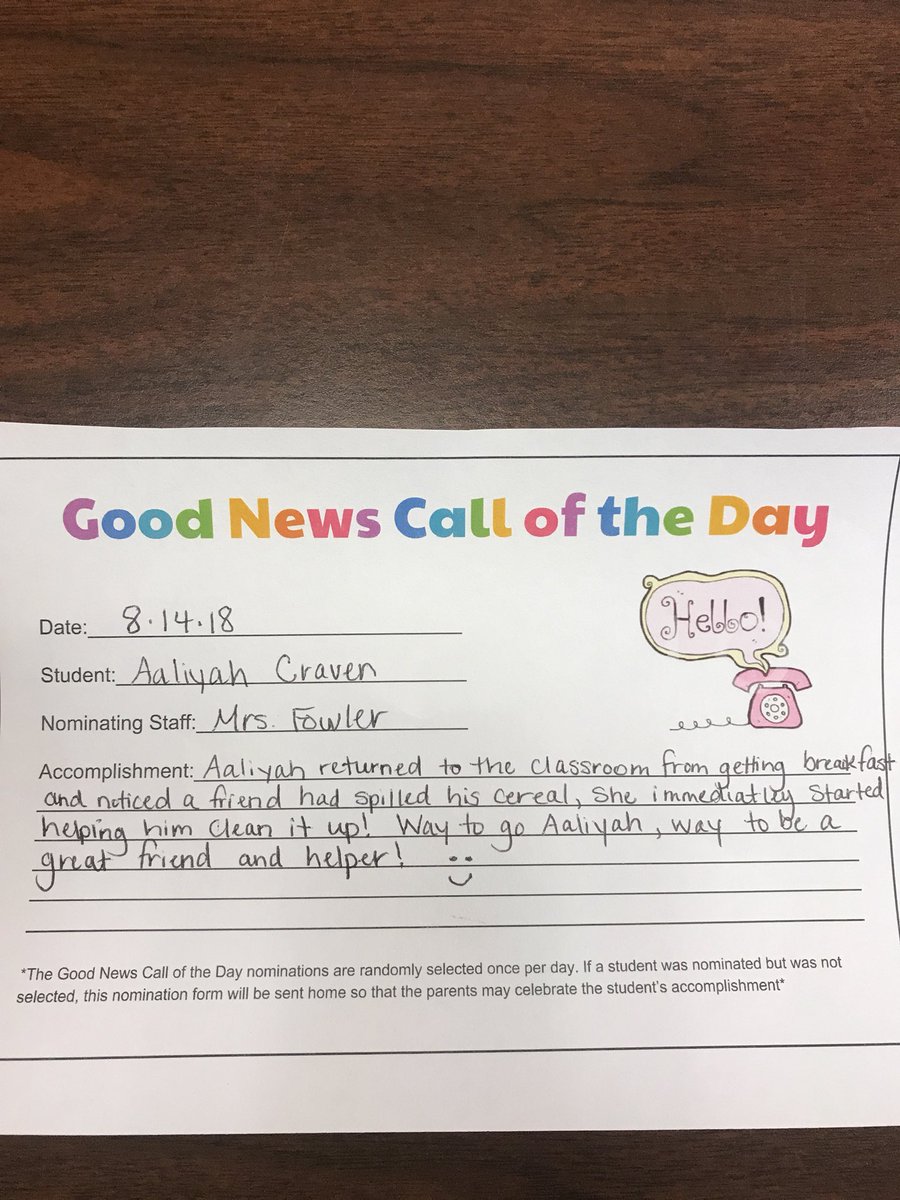 Good News Call of the Day
Hello!
Date: 8.14.18
Student: Aaliyah Craven
Nominating Staff: Mrs. Fowler
Accomplishment: Aaliyah returned to the classroom from getting breakfast
and noticed a friend had spilled his cereal, She immediatley started
helping him clean it up! Way to go Aaliyah, way to be a
great friend and helper!
*The Good News Call of the Day nominations are randomly selected once per day. If a student was nominated but was not
selected, this nomination form will be sent home so that the parents may celebrate the student's accomplishment*